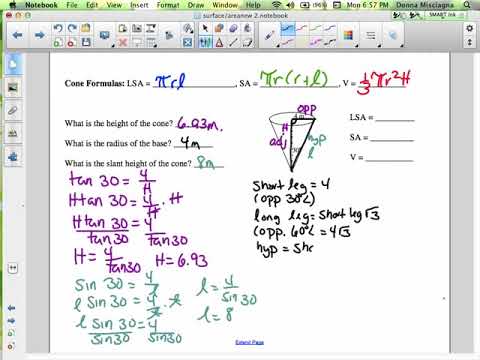 Notebook File Edit View Insert Format Draw Mon 6:57 PM Donna Misciagna
surface/areanew 2.notebook
SMART Ink
Cone Formulas: LSA = πrl, SA = πr(r+l), V = 1/3 πr²H
What is the height of the cone? 6.93m.
What is the radius of the base? 4m
What is the slant height of the cone? 8m
opp
4 m
H
adj
hyp
l
LSA =
SA =
V =
tan 30 = 4/H
H tan 30 = 4/H · H
H tan 30/tan 30 = 4/tan 30
H = 4/tan 30 H = 6.93
sin 30 = 4/l
l sin 30 = 4/l · l
l sin 30/sin 30 = 4/sin 30
l = 4/sin 30
l = 8
short leg = 4
(opp 30°∠)
long leg = short leg √3
(opp. 60°∠ = 4√3
hyp = sh
Extend Page